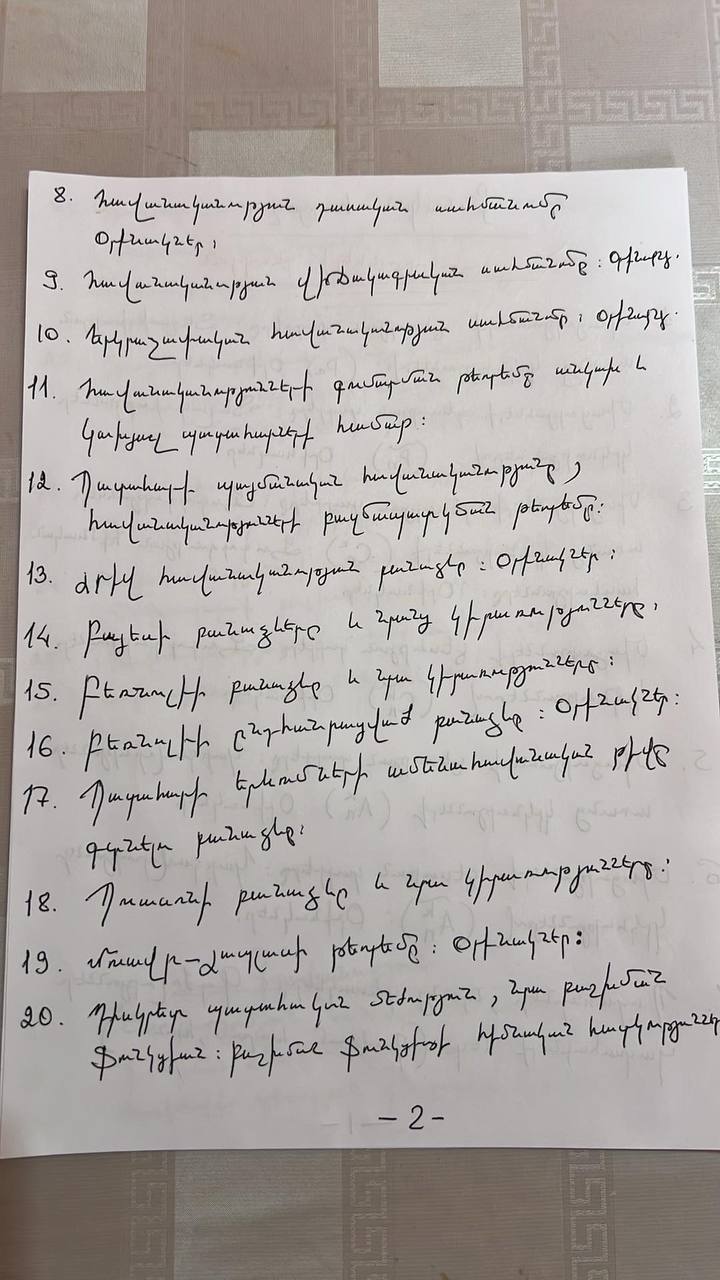 8. Հավանականության դասական սահմանումը
Օրինակներ։
9. Հավանականության վիճակագրական սահմանումը։ Օրինակ.
10. Երկրաչափական հավանականության սահմանումը։ Օրինակ.
11. Հավանականությունների գումարման թեորեմը անկախ և
կախյալ պատահարների համար։
12. Պատահարի պայմանական հավանականությունը,
հավանականությունների բազմապատկման թեորեմը։
13. Լրիվ հավանականության բանաձևը։ Օրինակներ։
14. Բայեսի բանաձևերը և նրանց կիրառությունները։
15. Բեռնուլիի բանաձևը և նրա կիրառությունները։
16. Բեռնուլիի ընդհանրացված բանաձևը։ Օրինակներ։
17. Պատահարի երևումների ամենահավանական թիվը
գտնելու բանաձևը։
18. Պուասոնի բանաձևը և նրա կիրառությունները։
19. Մուավր-Լապլասի թեորեմը։ Օրինակներ։
20. Դիսկրետ պատահական մեծություն, նրա բաշխման
ֆունկցիան։ Բաշխման ֆունկցիայի հիմնական հատկությունները
-2-